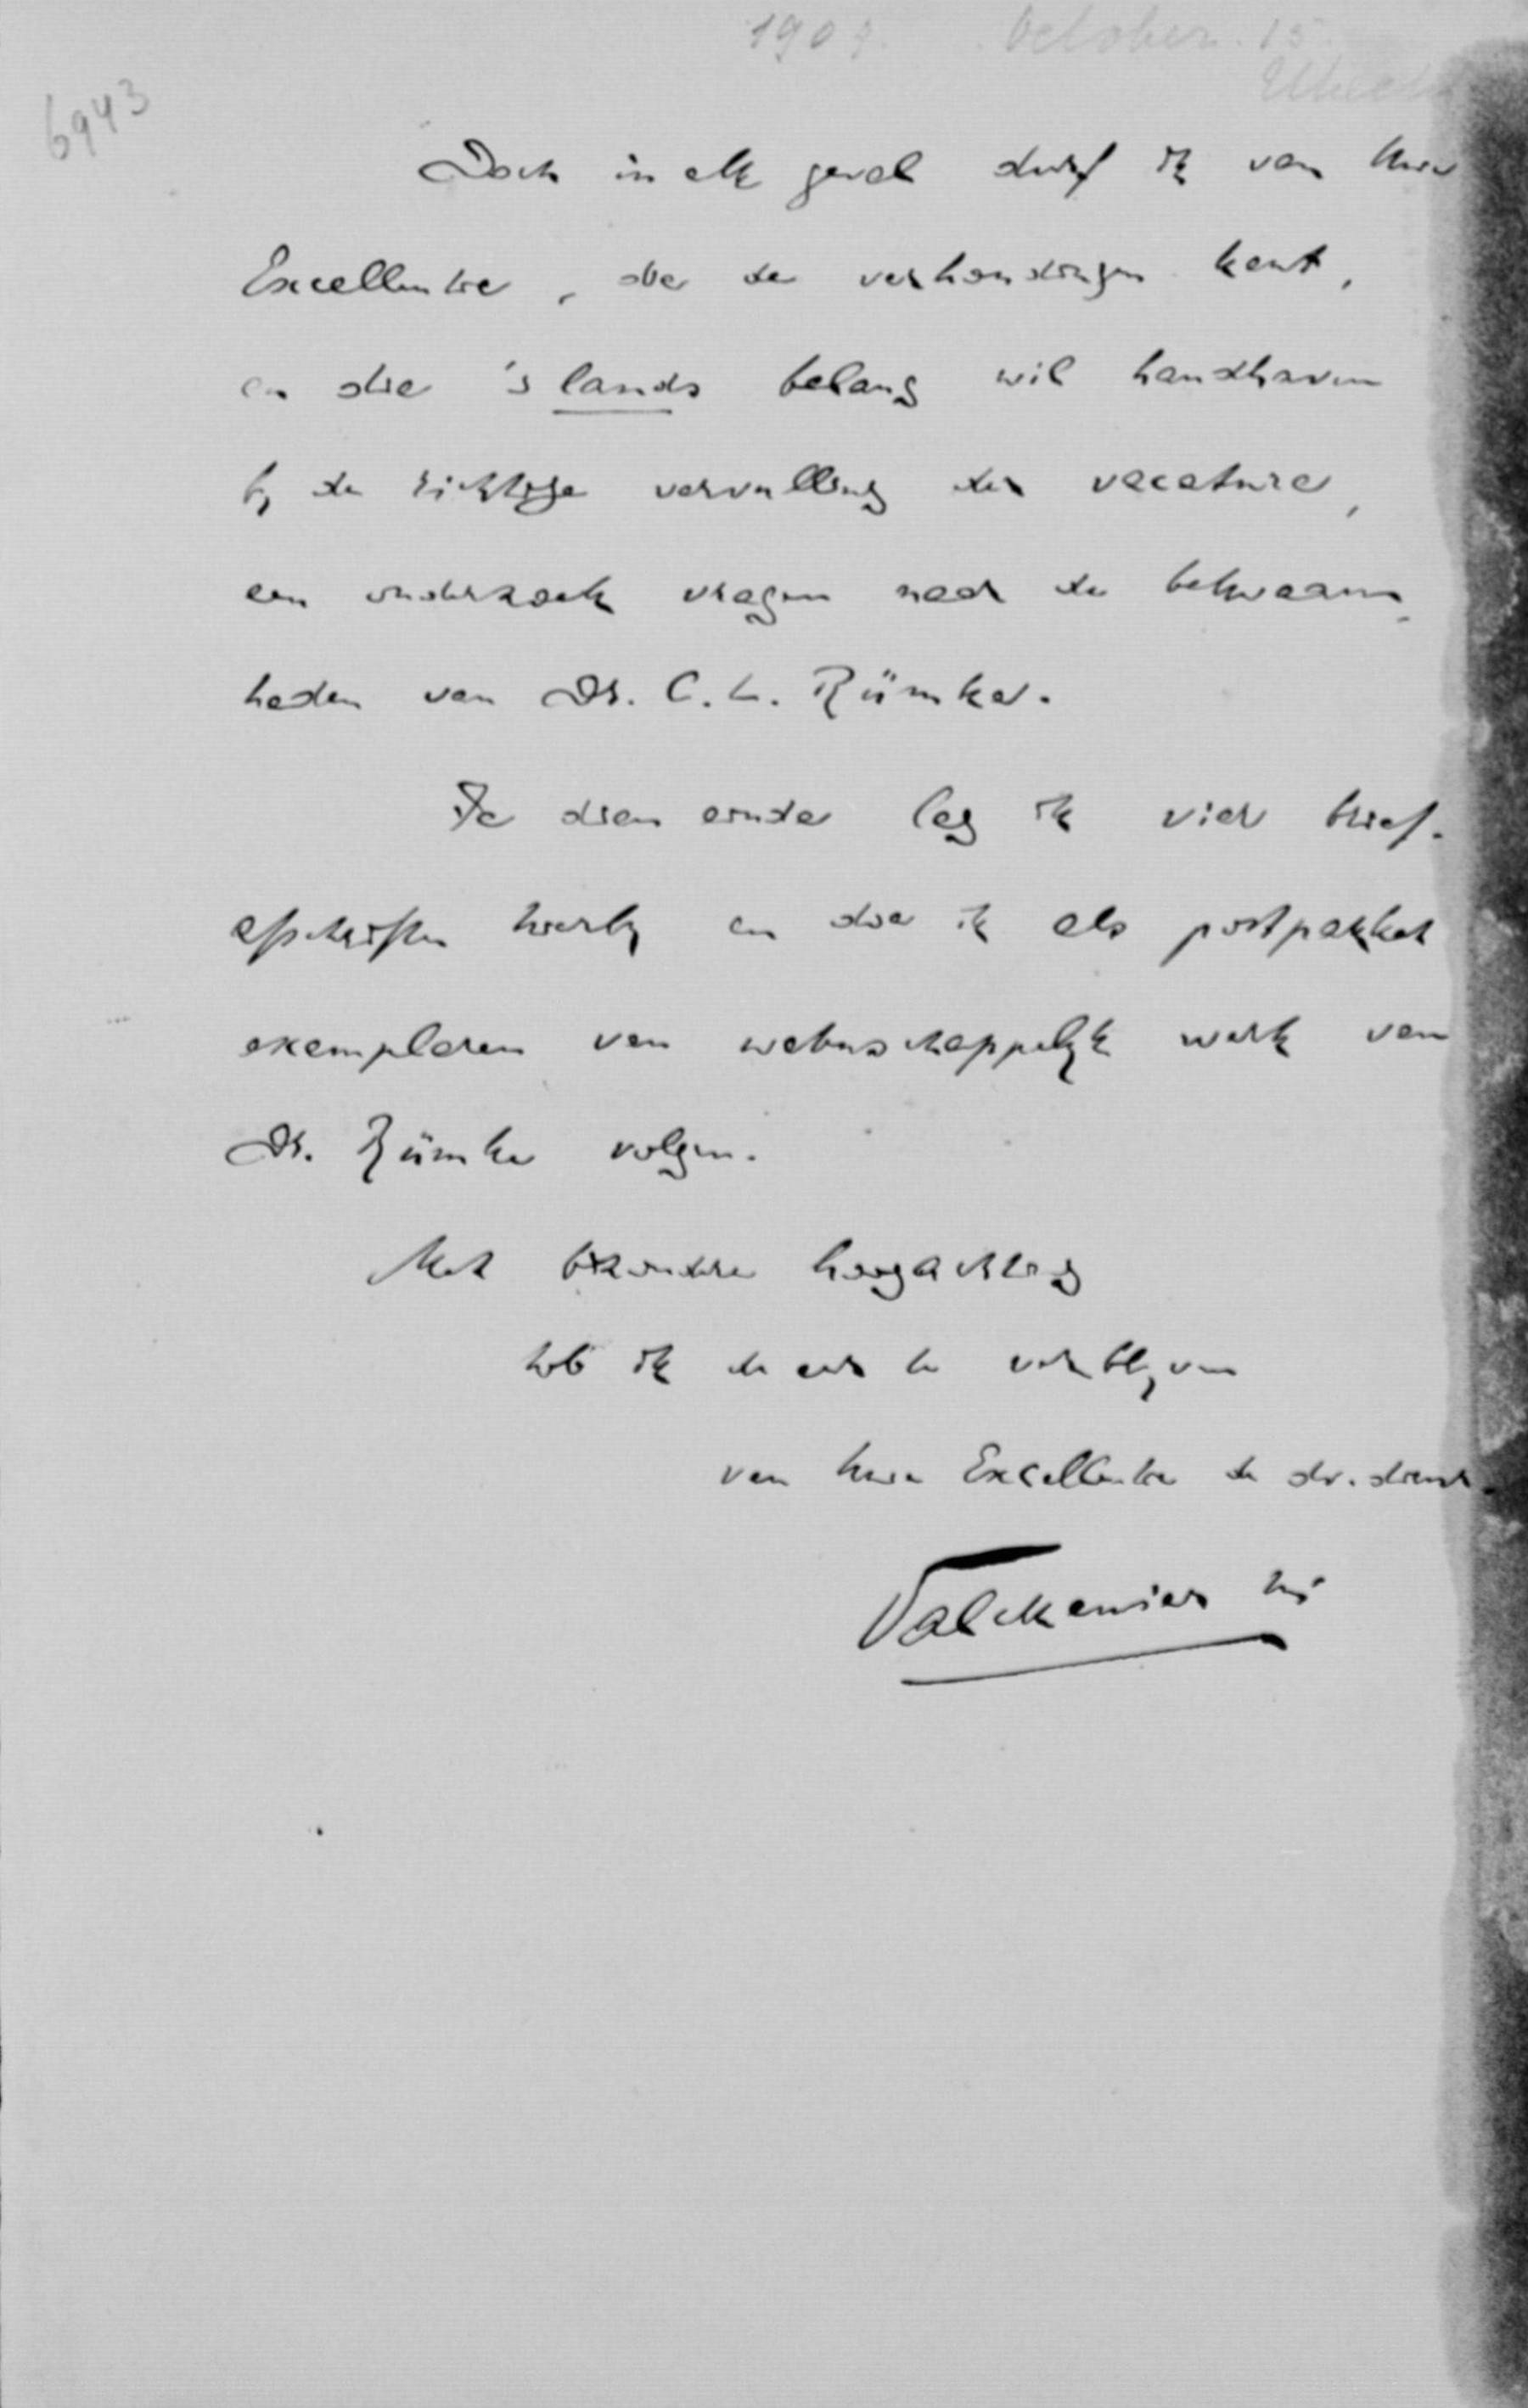 1909. October. 15.
Utrecht
6943
Doch in elk geval durf ik van Uwe
Excellentie, die de verhoudingen kent,
en die 's lands belang wil handhaven
bij de richtige vervulling der vacature,
een onderzoek vragen naar de bekwaam-
heden van Dr. C. L. Rümke.
Te dien einde leg ik vier brief-
afschriften hierbij en doe ik als postpakket
exemplaren van wetenschappelijk werk van
Dr. Rümke volgen.
Met bizondere hoogachting
heb ik de eer te verblijven
van Uwe Excellentie de dv. dienr.
Valckenier